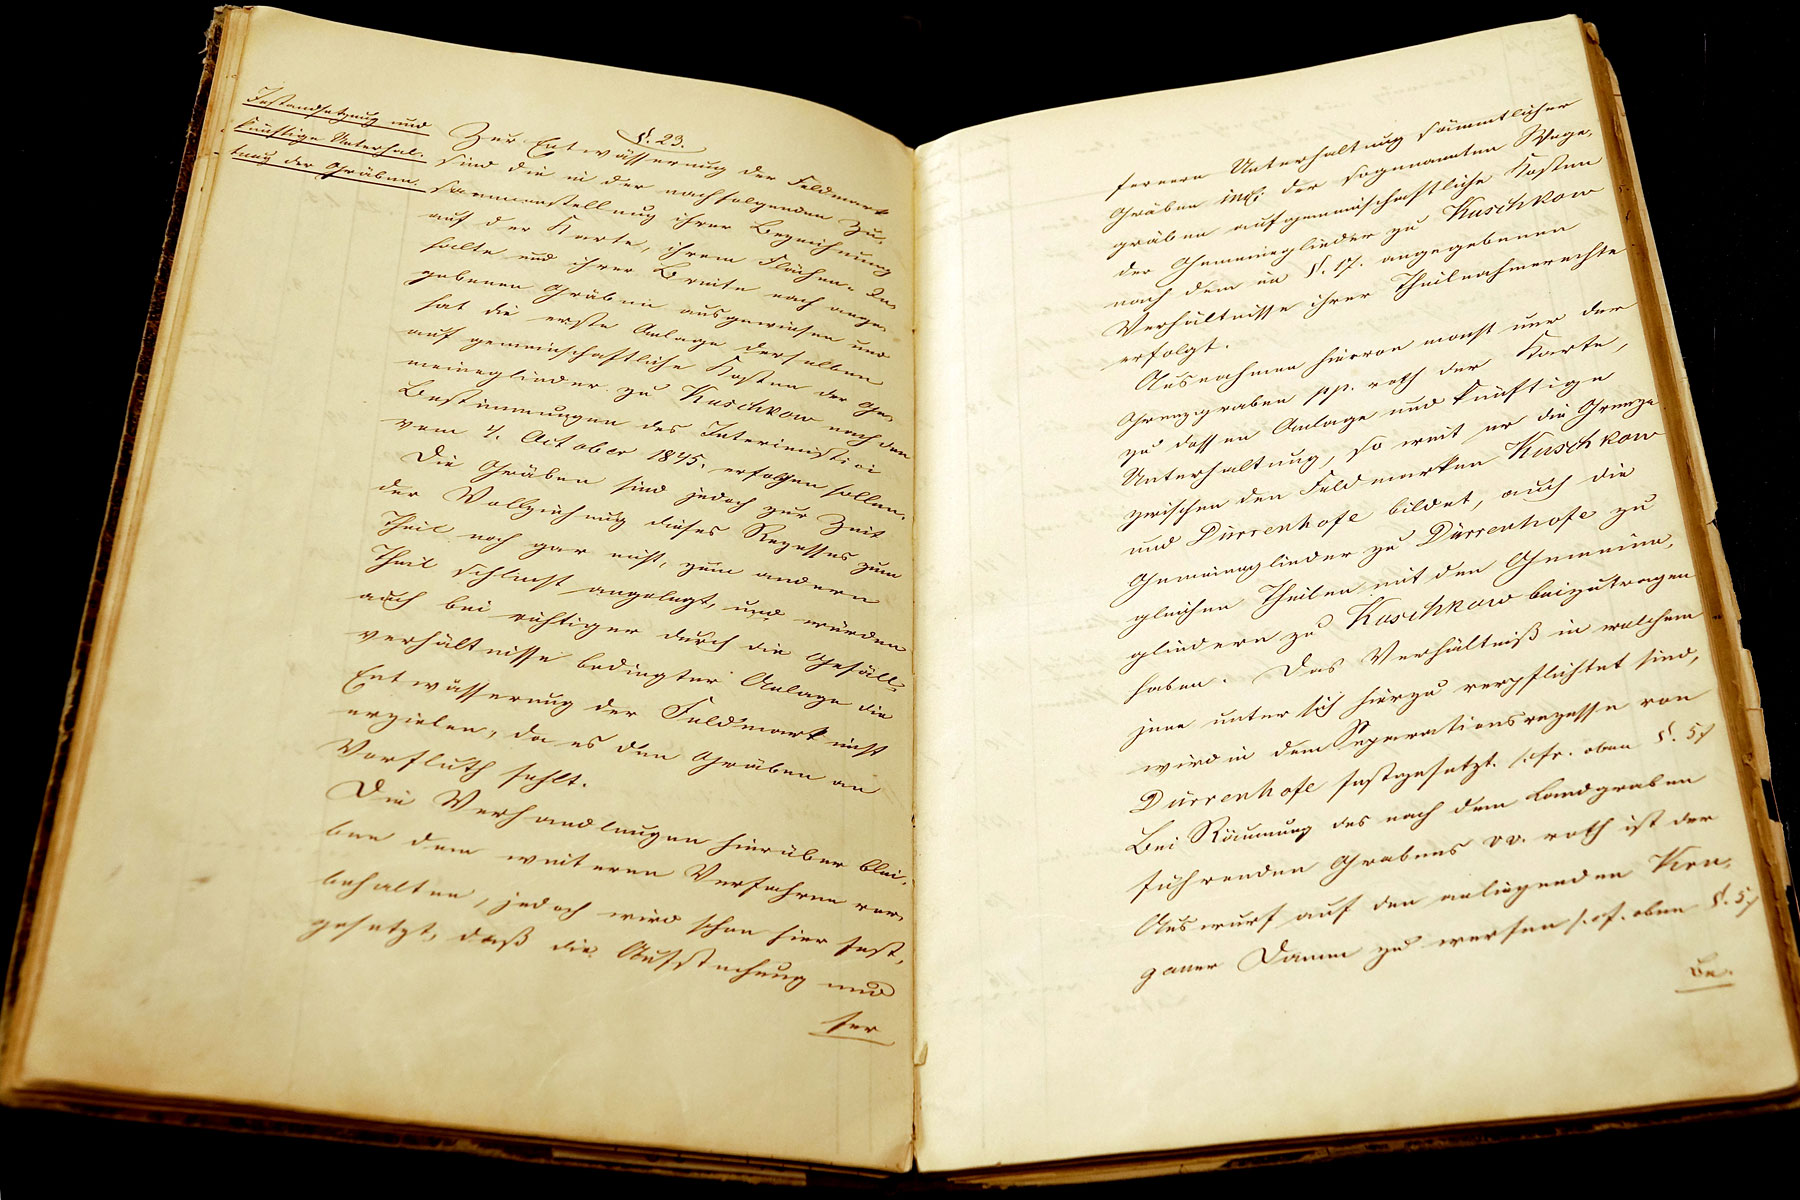 Instandsetzung und
künftige Unterhal-
tung der Gräben.
§. 23.
Zur Entwässerung der Feldmark
sind die in der nachfolgenden Zu-
sammenstellung ihrer Bezeichnung
auf der Karte, ihrem Flächen-In-
halte und ihrer Breite nach ange-
gebenen Gräben ausgewiesen und
hat die erste Anlage derselben
auf gemeinschaftliche Kosten der Ge-
meineglieder zu Kuschkow nach den
Bestimmungen des Interimistici
vom 4. October 1845. erfolgen sollen.
Die Gräben sind jedoch zur Zeit
der Vollziehung dieses Rezesses zum
Theil noch gar nicht, zum andern
Theil schlecht angelegt, und würden
auch bei richtiger durch die Gefäll-
verhältnisse bedingter Anlage die
Entwässerung der Feldmark nicht
erzielen, da es den Gräben an
Vorfluth fehlt.
Die Verhandlungen hierüber blei-
ben dem weiteren Verfahren vor-
behalten, jedoch wird schon hier fest-
gesetzt, daß die Aufstechung und
fer
fernere Unterhaltung sämmtlicher
Gräben incl. der sogenannten Wege-
gräben auf gemeinschaftliche Kosten
der Gemeineglieder zu Kuschkow
nach dem im §. 17. angegebenen
Verhältnisse ihrer Theilnahmerechte
erfolgt.
Ausnahmen hiervon macht nur der
Grenzgraben pp. roth der Karte,
zu dessen Anlage und künftige
Unterhaltung, so weit er die Grenze
zwischen den Feldmarken Kuschkow
und Dürrenhofe bildet, auch die
Gemeineglieder zu Dürrenhofe zu
gleichen Theilen mit den Gemeine-
gliedern zu Kuschkow beizutragen
haben. Das Verhältniß in welchem
jene unter sich hierzu verpflichtet sind,
wird in dem Separationsrezesse von
Dürrenhofe festgesetzt. /:cfr. oben §. 5
Bei Räumung des nach dem Landgraben
führenden Grabens vv. roth ist der
Auswurf auf den anliegenden Kru-
gauer Damm zu werfen /:cf. oben §. 5
Be.